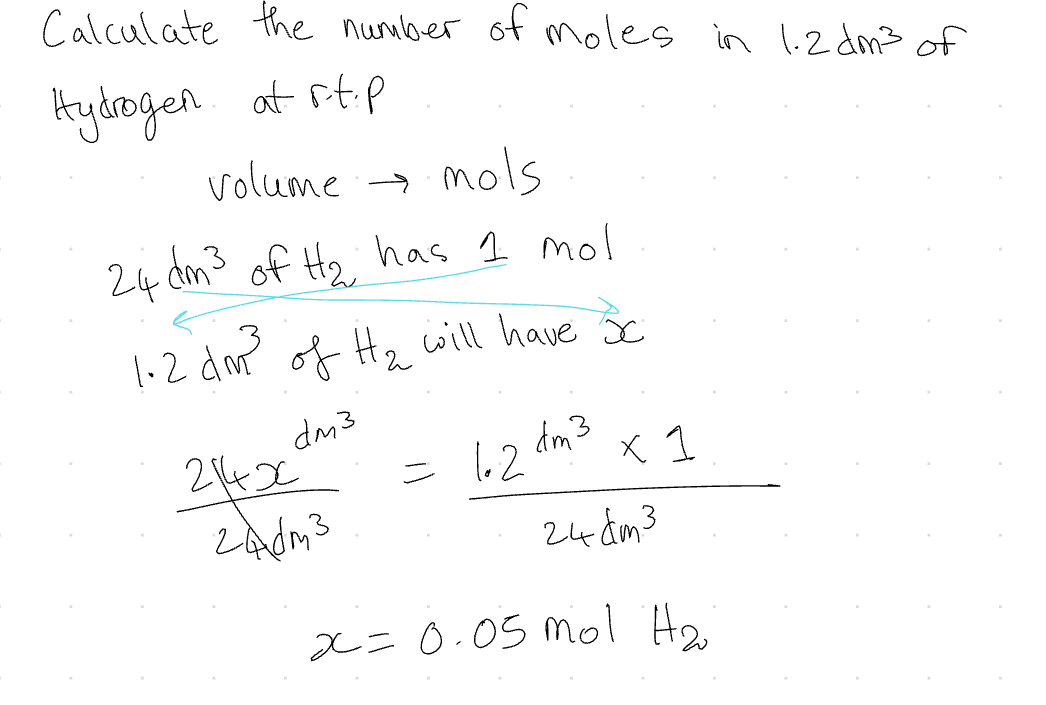 Calculate the number of moles in 1.2 dm³ of
Hydrogen at r.t.p
volume → mols
24 dm³ of H₂ has 1 mol
1.2 dm³ of H₂ will have x
24x dm³ / 24 dm³ = 1.2 dm³ × 1 / 24 dm³
x = 0.05 mol H₂